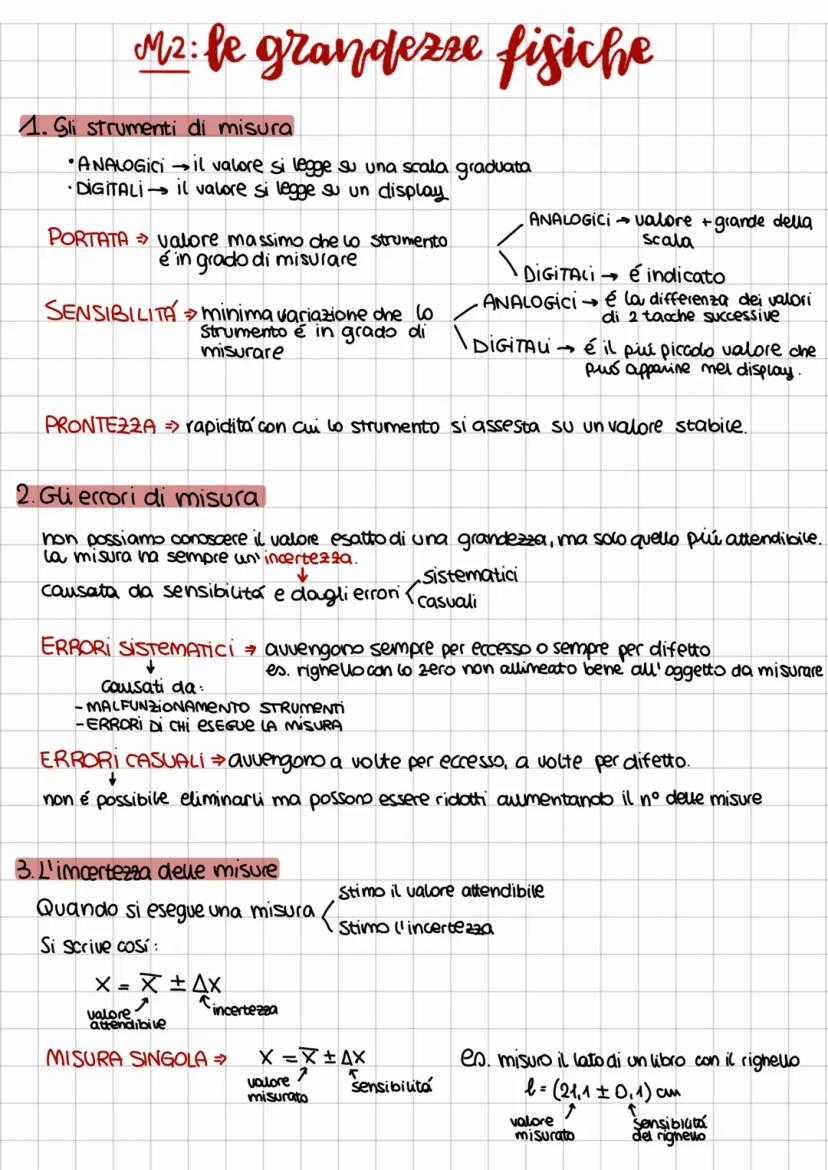 M2: le grandezze fisiche
1. Gli strumenti di misura
• ANALOGICI → il valore si legge su una scala graduata
• DIGITALI → il valore si legge su un display
PORTATA ⇒ valore massimo che lo strumento
é in grado di misurare
ANALOGICI → valore + grande della
scala
DIGITALI → é indicato
SENSIBILITÁ ⇒ minima variazione che lo
strumento é in grado di
misurare
ANALOGICI → é la differenza dei valori
di 2 tacche successive
DIGITALI → é il piú piccolo valore che
puó apparire nel display.
PRONTEZZA ⇒ rapiditá con cui lo strumento si assesta su un valore stabile.
2. Gli errori di misura
non possiamo conoscere il valore esatto di una grandezza, ma solo quello piú attendibile.
la misura ha sempre un'incertezza.
↓
causata da sensibilitá e dagli errori
sistematici
casuali
ERRORI SISTEMATICI ⇒ avvengono sempre per eccesso o sempre per difetto
es. righello con lo zero non allineato bene all'oggetto da misurare
↓
causati da:
- MALFUNZIONAMENTO STRUMENTI
- ERRORI DI CHI ESEGUE LA MISURA
ERRORI CASUALI ⇒ avvengono a volte per eccesso, a volte per difetto.
↓
non é possibile eliminarli ma possono essere ridotti aumentando il n° delle misure
3. L'incertezza delle misure
Quando si esegue una misura
stimo il valore attendibile
stimo l'incertezza
Si scrive cosí:
X = X̅ ± ΔX
valore
attendibile
incertezza
MISURA SINGOLA ⇒ X = X̅ ± ΔX
valore
misurato
sensibilitá
es. misuro il lato di un libro con il righello
l = (21,1 ± 0,1) cm
valore
misurato
sensibilitá
del righello